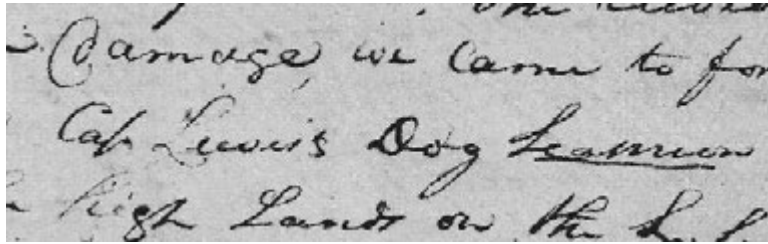 Damage, we came to for
Cap Lewis's Dog Seamon
high Lands on the L. S.